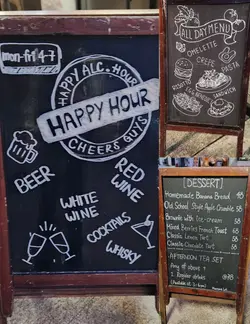 mon-fri 4-7
HAPPY ALC. HOUR
HAPPY HOUR
CHEERS GUYS
BEER
RED
WINE
WHITE
WINE
COCKTAILS
WHISKY
ALL DAY MENU
OMELETTE
CREPE
PASTA
RISOTTO
SANDWICH
[DESSERT]
Homemade Banana Bread
Old School Style Apple Crumble
Brownie with Ice-cream
Mixed Berries French Toast
Classic Lemon Tart
Classic Chocolate Tart
AFTERNOON TEA SET
Any of above +
1 Regular drinks